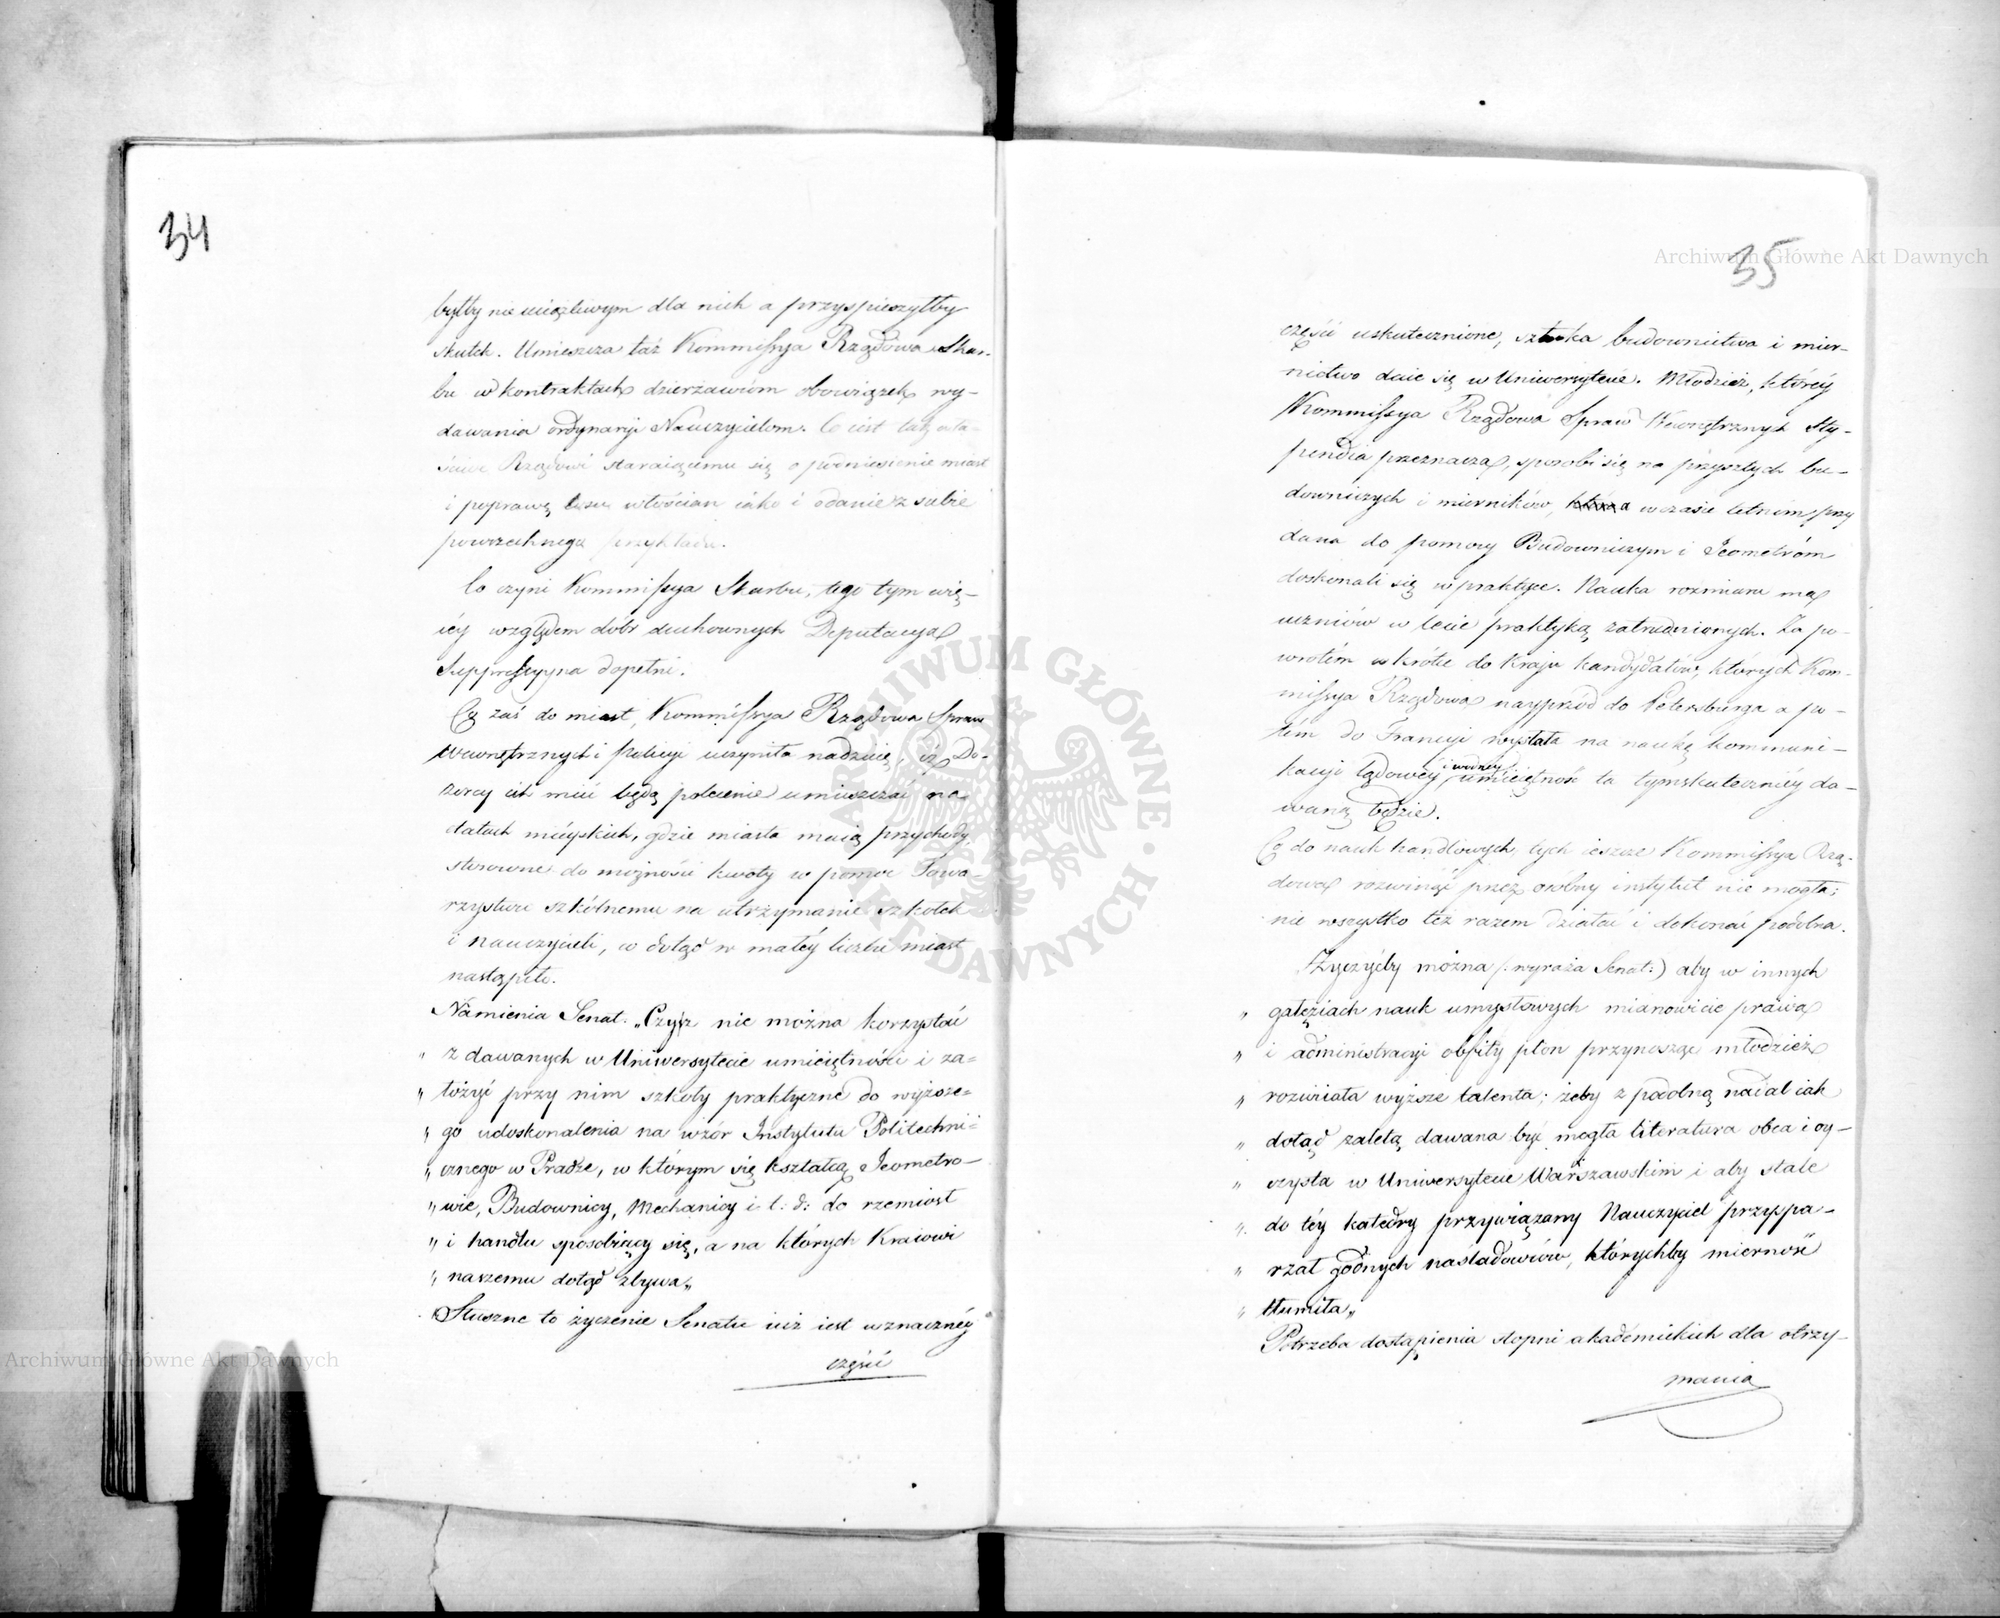 34
byłby nie uciążliwym dla nich a przyspieszyłby
skutek. Umieszcza taż Kommissya Rządowa Skar-
bu w kontraktach dzierżawcóm obowiązek wy-
dawania ordynaryi Nauczycielom. Co iest
Rządowi staraiącemu się o podniesienie miast
i poprawę losu włościan iako i odanie z siebie
powszechnego przykładu.
Co czyni Kommissya Skarbu, tego tym wię-
céy względem dóbr duchownych Deputacya
Suppressyyna dopełni.
Co zaś do miast, Kommissya Rządowa Spraw
Wewnętrznych i Policyi uczyniła nadzieię, iż Do-
zorcy ich mieć będą polecenie umieszczać na
etatach mieyskich, gdzie miasta maią przychody,
stosowne do możności kwoty w pomoc Towa-
rzystwu szkólnemu na utrzymanie szkółek
i nauczycieli, co dotąd w małéy liczbie miast
nastąpiło.
Namienia Senat. „Czyż nie można korzystać
„ z dawanych w Uniwersytecie umieiętności i za-
„ łożyć przy nim szkoły praktyczne do wyższe-
„ go udoskonalenia na wzór Instytutu Politechni-
„ cznego w Pradze, w którym się kształcą Jeometro-
„ wie, Budownicy, Mechanicy i t: d: do rzemiosł
„ i handlu sposobiący się, a na których Kraiowi
„ naszemu dotąd zbywa„
Słuszne to życzenie Senatu iuż iest w znacznéy
części
35
części uskutecznione, sztuka budownictwa i mier-
nictwo daie się w Uniwersytecie. Młodzież, któréy
Kommissya Rządowa Spraw Wewnętrznych Sty-
pendia przeznacza, sposobi się na przyszłych bu-
downiczych i mierników, która w czasie letnim przy
dana do pomocy Budowniczym i Jeometróm
doskonali się w praktyce. Nauka rozmiaru ma
uczniów w lecie praktyką zatrudnionych. Za po-
wrotém wkrótce do Kraju kandydatów, których Kom-
missya Rządowa nayprzód do Petersburga a po-
tém do Francyi wysłała na naukę kommuni-
kacyi lądowéy i wodnéy, umieiętność ta tymskuteczniéy da-
waną będzie.
Co do nauk handlowych, tych ieszcze Kommissya Rzą-
dowa rozwinąć przez osobny instytut nie mogła;
nie wszystko téż razem działać i dokonać podobna.
Życzyćby można /: wyraża Senat :/ aby w innych
„ gałęziach nauk umysłowych mianowicie prawa
„ i administracyi obfity plon przynosząc młodzież
„ rozwiiała wyższe talenta; żeby z podobną nadal iak
„ dotąd zaletą dawana być mogła literatura obca i oy-
„ czysta w Uniwersytecie Warszawskim i aby stale
„ do téy katedry przywiązany Nauczyciel przyspa-
„ rzał godnych naśladowców, którychby mierność
„ tłumiła„
Potrzeba dostąpienia stopni akademickich dla otrzy-
mania
Archiwum Główne Akt Dawnych
Archiwum Główne Akt Dawnych
ARCHIWUM GŁÓWNE AKT DAWNYCH